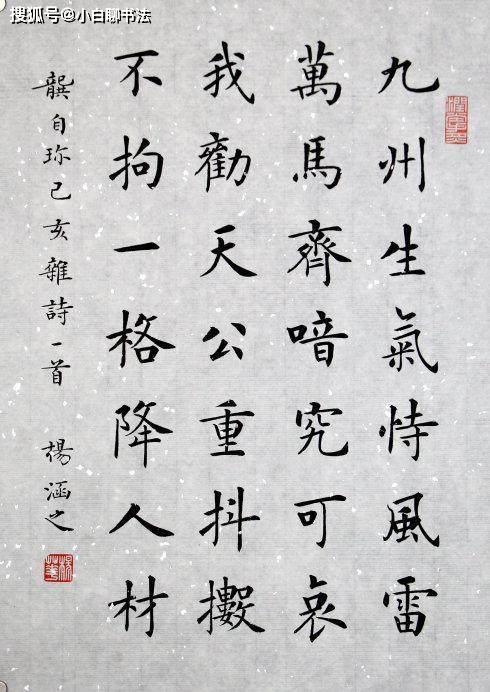 搜狐号@小白聊书法
九州生氣恃風雷
萬馬齊喑究可哀
我勸天公重抖擻
不拘一格降人材
龔自珍己亥雜詩一首 楊涵之